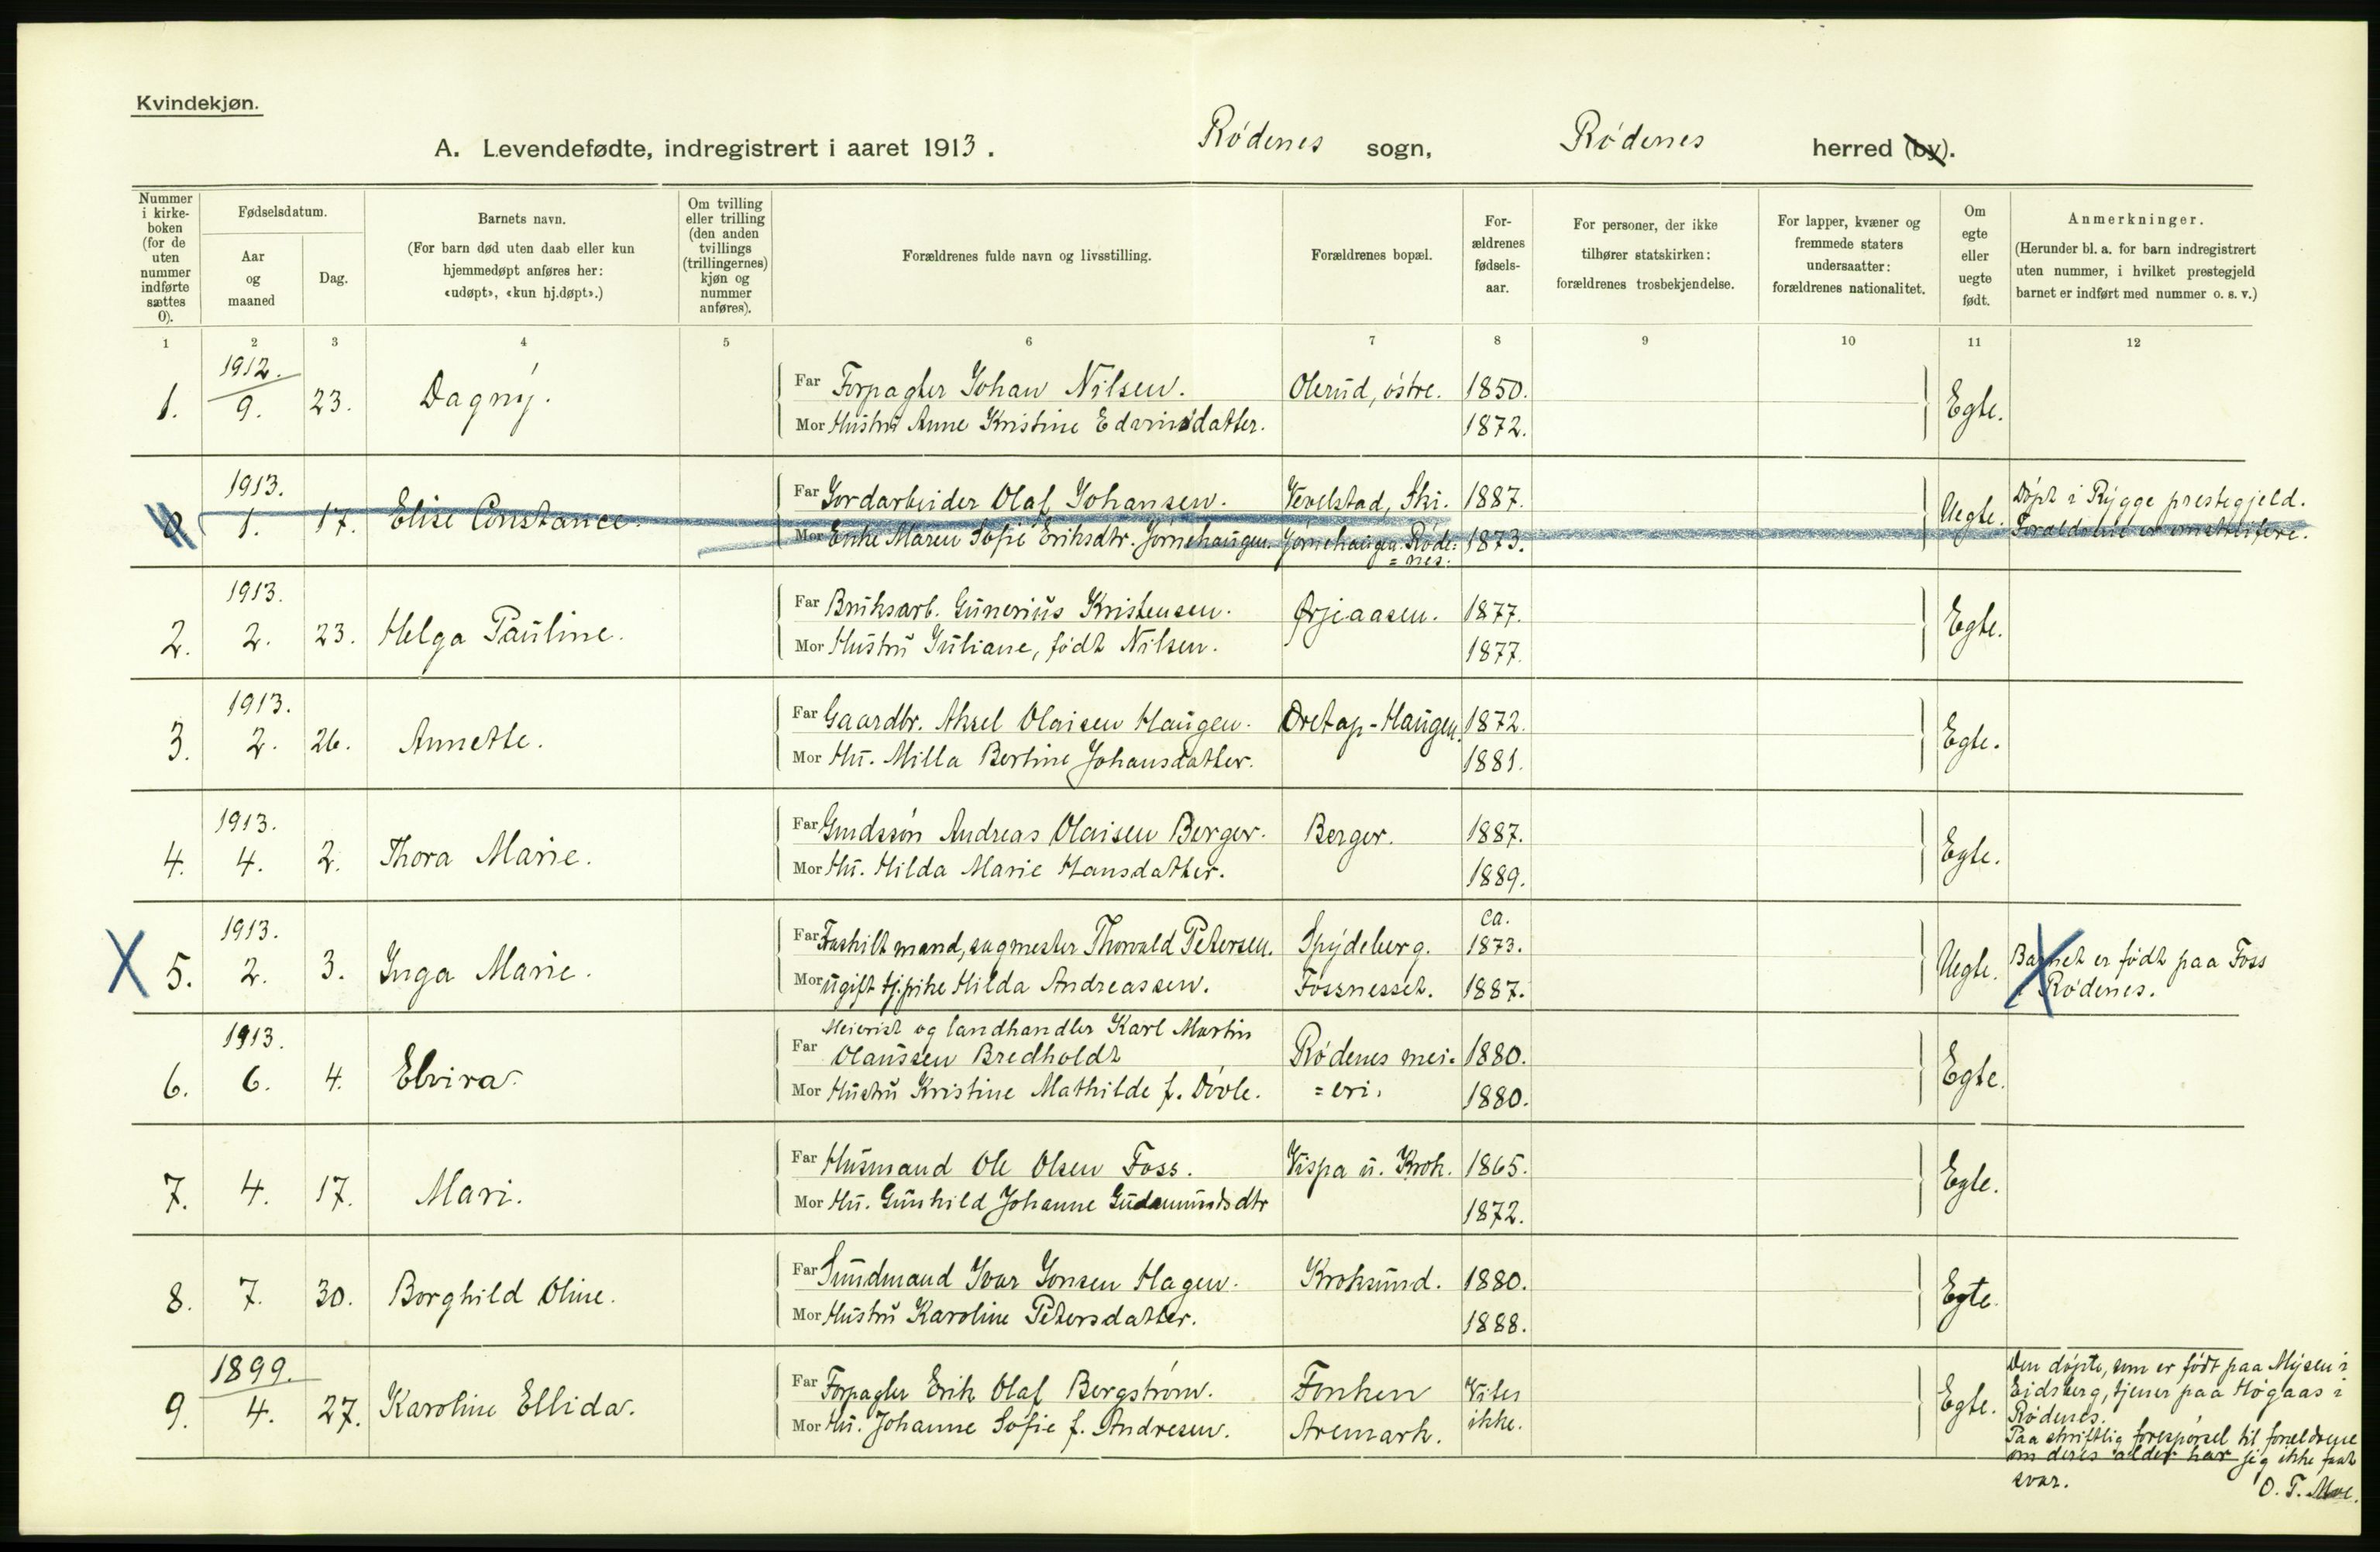 Kvindekjøn.
A. Levendefødte, indregistrert i aaret 1913. Rödenes sogn, Rödenes herred (by).
Nummer i kirke-boken (for de uten nummer indførte sættes 0).
Fødselsdatum.
Aar og maaned
Dag.
Barnets navn.
(For barn død uten daab eller kun hjemmedøpt anføres her: «udøpt», «kun hj.døpt».)
Om tvilling eller trilling (den anden tvillings (trillingernes) kjøn og nummer anføres).
Forældrenes fulde navn og livsstilling.
Forældrenes bopæl.
For-ældrenes fødsels-aar.
For personer, der ikke tilhører statskirken: forældrenes trosbekjendelse.
For lapper, kvæner og fremmede staters undersaatter: forældrenes nationalitet.
Om egte eller uegte født.
Anmerkninger.
(Herunder bl. a. for barn indregistrert uten nummer, i hvilket prestegjeld barnet er indført med nummer o. s. v.)
1 2 3 4 5 6 7 8 9 10 11 12
1912.
1. 9. 23. Dagny. Far Forpagter Johan Nilsen. Olerud, östre. 1850. Egte.
Mor Hustru Anne Kristine Edvinsdatter. 1872.
1913.
0 1. 17. Elise Constance. Far Jordarbeider Olaf Johansen. Vevelstad, Ski. 1887. Uegte. Döpt i Rygge prestegjeld.
Mor Enke Maren Sofie Eriksdtr. Jörnehaugen. Jörnehaugen. Röde= 1873. Foræeldrene er omstreifere.
=nes.
1913.
2. 2. 23. Helga Pauline. Far Bruksarb. Gunerius Kristensen. Ørjeaasen. 1877. Egte.
Mor Hustru Juliane, födt Nilsen. 1877.
1913.
3. 2. 26. Annette. Far Gaardbr. Aksel Olaisen Haugen. Oretap-Haugen. 1872. Egte.
Mor Hu. Milla Bertine Johansdatter. 1881.
1913.
4. 4. 2. Thora Marie. Far Gmdssön Andreas Olaisen Berger. Berger. 1887. Egte.
Mor Hu. Hilda Marie Hansdatter. 1889.
1913. ca.
X 5. 2. 3. Inga Marie. Far Fraskilt mand, sagmester Thorvald Petersen. Spydeberg. 1873. Uegte. Barnet er födt paa Foss
Mor ugift tj.pike Hilda Andreassen. Fossnesset. 1887. i Rödenes.
1913. Meierist og landhandler Karl Martin
6. 6. 4. Elvira. Far Olaussen Bredholdt Rödenes mei= 1880. Egte.
Mor Hustru Kristine Mathilde f. Dövle. =eri. 1880.
7. 4. 17. Mari. Far Husmand Ole Olsen Foss. Vispa u. Krok. 1865. Egte.
Mor Hu. Gunhild Johanne Gudmundsdtr 1872.
8. 7. 30. Borghild Oline. Far Smudmand Ivar Jonsen Hagen. Kroksund. 1880. Egte.
Mor Hustru Karoline Petersdatter. 1888.
1899.
9. 4. 27. Karoline Ellida. Far Forpagter Erik Olaf Bergström. Fonken Vites Egte.
Mor Hu. Johanne Sofie f. Andresen. Aremark. ikke.
Den döpte, som er födt paa Mysen i
Eidsberg, tjener paa Högaas i
Rödenes.
Paa skriftlig forespörsel til forældrene
om deres alder har jeg ikke faat
svar. O. T. Moe.